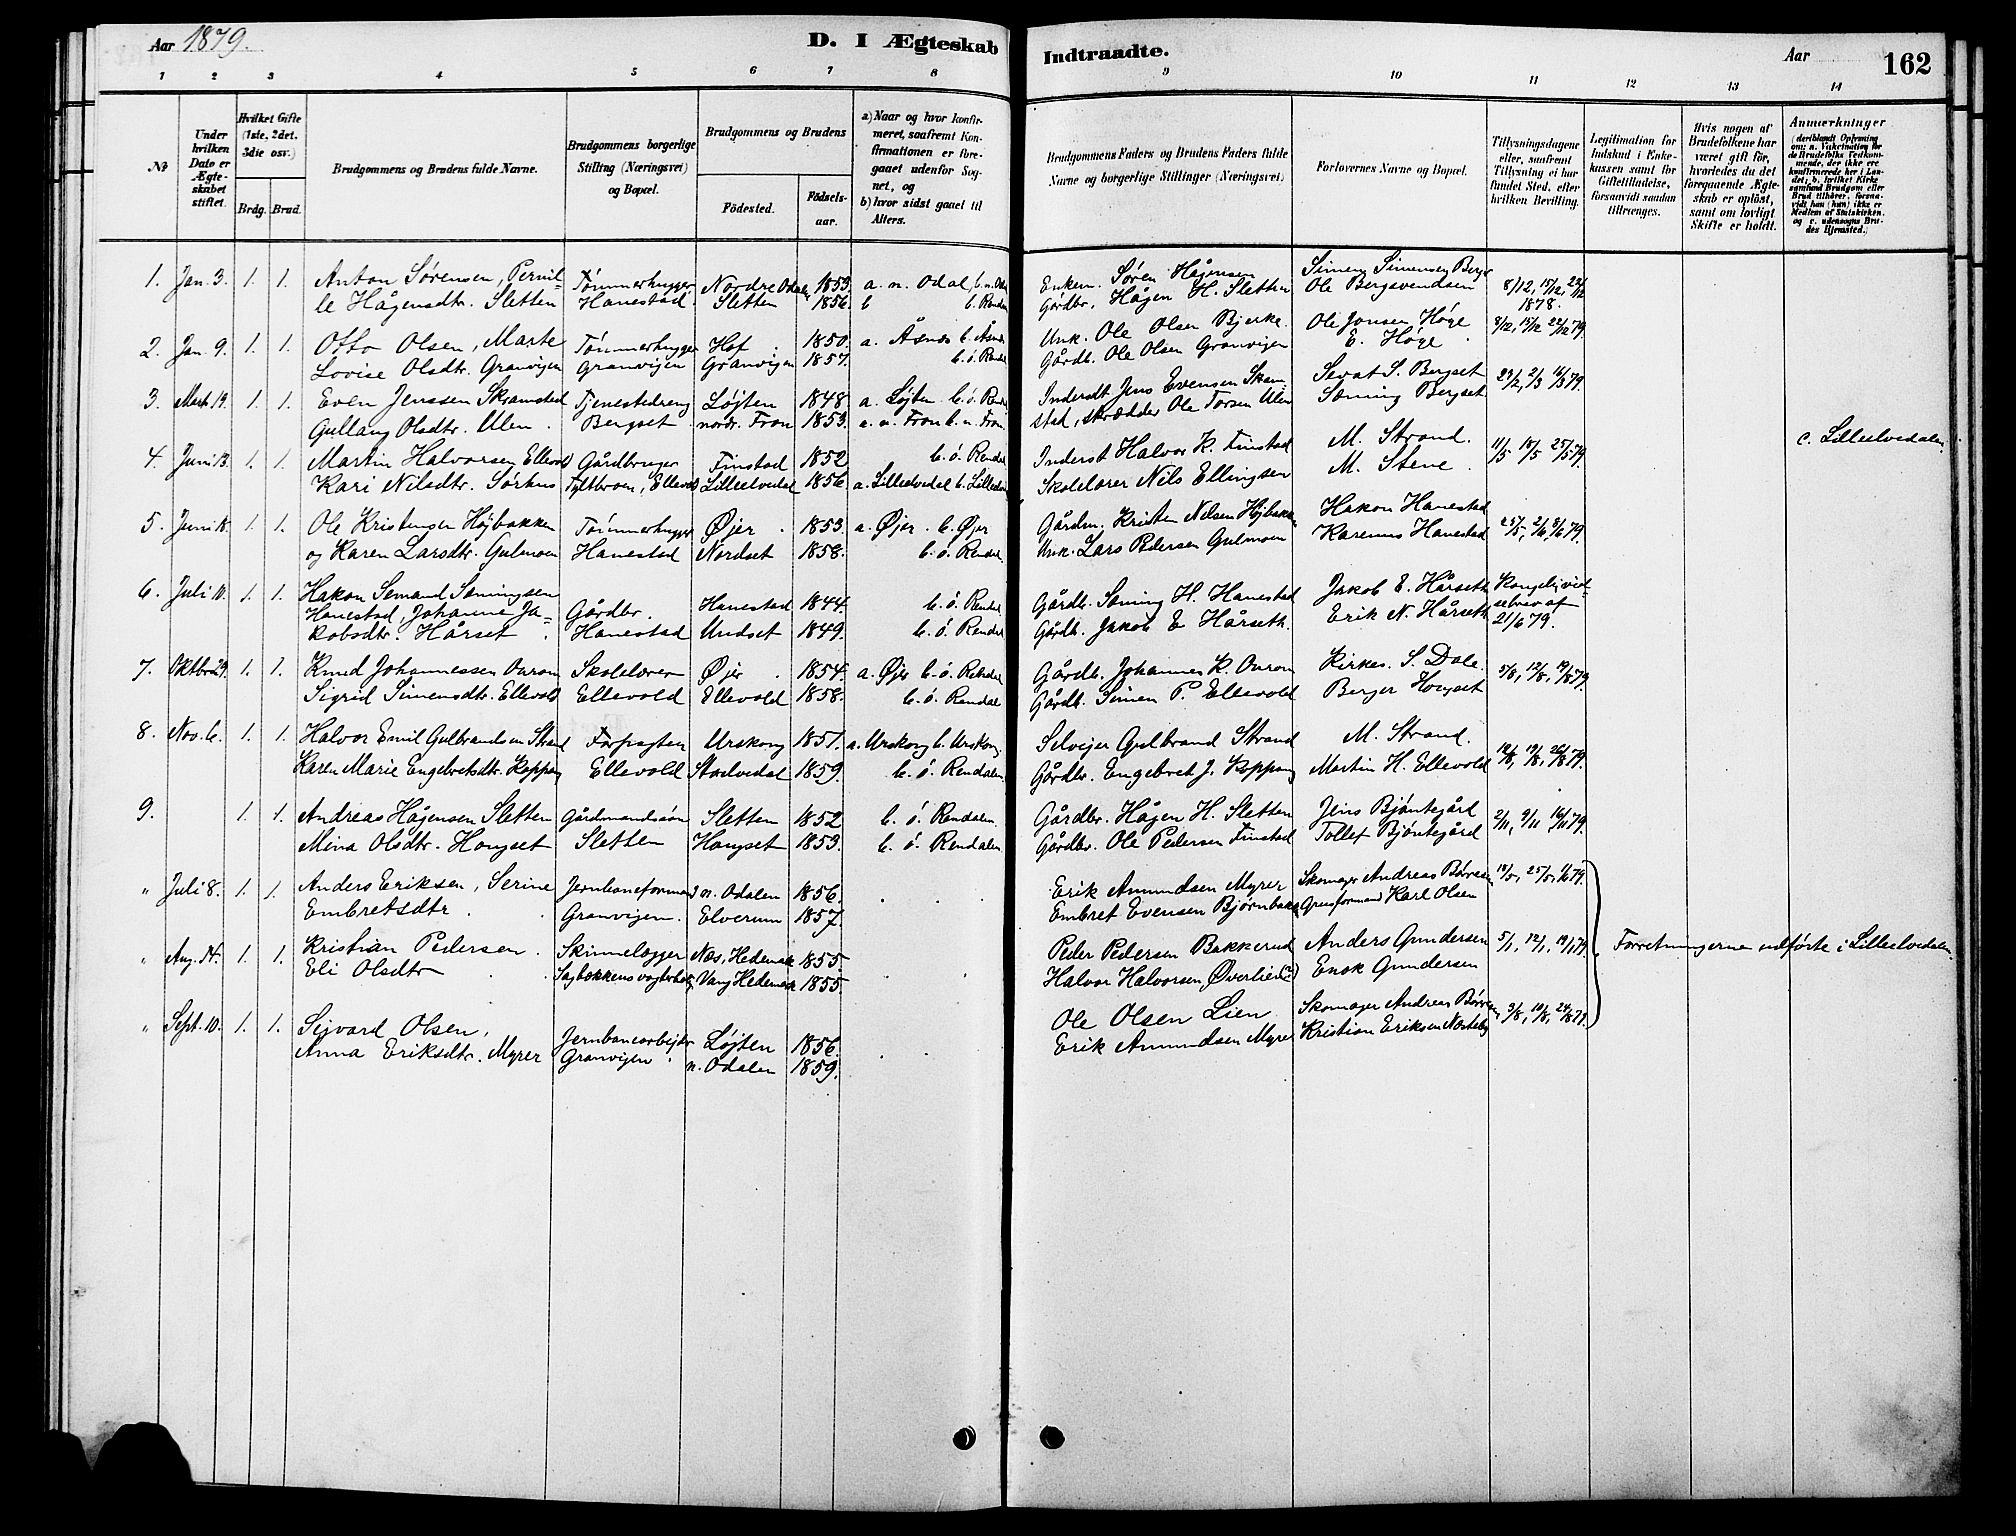 Aar 1879.
D. I Ægteskab Indtraadte.
Aar
162
1 2 3 4 5 6 7 8 9 10 11 12 13 14
No
Under hvilken Dato er Ægteskabet stiftet.
Hvilket Gifte (1ste, 2det, 3die osv.)
Brdg. Brud.
Brudgommens og Brudens fulde Navne.
Brudgommens borgerlige Stilling (Næringsvei) og Bopæl.
Brudgommens og Brudens
Födested.
Födselsaar.
a) Naar og hvor konfirmeret, saafremt Konfirmationen er foregaaet udenfor Sognet, og
b) hvor sidst gaaet til Alters.
Brudgommens Faders og Brudens Faders fulde Navne og borgerlige Stillinger (Næringsvei)
Forlovernes Navne og Bopæl.
Tillysningsdagene eller, saafremt Tillysning ei har fundet Sted, efter hvilken Bevilling.
Legitimation for Indskud i Enkekassen samt for Giftetilladelse, forsaavidt saadan tiltrænges.
Hvis nogen af Brudefolkene har været gift för, hvorledes da det foregaaende Ægteskab er oplöst, samt om lovligt Skifte er holdt.
Anmærkninger
1. Jan. 3. 1. 1. Anton Sørensen, Pernil- Tømmerhugger Nordre Odalen 1853 a. n. Odal, b. n. Odal Enkem. Søren Hågensen Simen Simensen Berger 8/12, 15/12, 22/12
le Hågensdtr. Sletten Hanestad Sletten 1856. b b. Rendal Gårdbr. Hågen H. Sletten Ole Bergsvendsen 1878.
2. Jan. 9. 1. 1. Otto Olsen, Marte Tømmerhugger Hof 1850. a. Åsnes b. Åsnes Unk. Ole Olsen Bjerke. Ole Jonsen Høge 8/12, 15/12 22/12 79.
Lovise Olsdtr. Granvigen Granvigen Granvigen 1857. b. ö. Rendal Gårdb. Ole Olsen Granvigen E. Høge
3. Mart. 19. 1. 1. Even Jenssen Skramstad Tjenestedreng Løjten 1848 a. Løjten b. ö. Rendal Inderst Jens Evensen Skram- Sevat S. Bergset 23/2, 2/3 16/3 79.
Gullaug Olsdtr. Ulen. Bergset nordr. Fron 1853. a. n. Fron b. n. Fron. stad, skrædder Ole Torsen Ulen Sæming Bergset
4. Juni 13. 1. 1. Martin Halvorsen Ellevold Gårdbruger Finstad 1852 b. ö. Rendal Inderst Halvor K. Finstad M. Strand. 11/5 18/5 25/5 79. c. Lilleelvedalen.
Kari Nilsdtr. Sørhus Ellevold Lilleelvedal 1856. a. Lilleelvedal b. Lilleelvedal Skolelærer Nils Ellingsen M. Stene.
5. Juni 18. 1. 1. Ole Kristensen Højbakken Tømmerhugger Øjer 1853. a. Øjer. b. Øjer Gårdm. Kristen Nilsen Højbakken Hakon Hanestad 25/5, 2/6, 8/6 79.
og Karen Larsdtr. Gulmoen Hanestad Nordset 1858. b. ö. Rendal Unk. Lars Pedersen Gulmoen Karenus Hanestad
6. Juli 10. 1. 1. Hakon Semand Sæmingsen
Hanestad, Johanne Ja- Gårdbr. Hanestad 1844. b. ö. Rendal Gårdb. Sæming H. Hanestad Jakob E. Hårseth Kongelig viel-
kobsdtr. Hårset Hanestad Undset 1849. b. ö. Rendal Gårdb. Jakob E Hårseth. Erik N. Hårseth selsbrev af 21/6 79.
7. Oktbr. 29. 1. 1. Knud Johannessen Ouron Skolelærer Øjer 1854. a. Øjer b. ö. Rendal Gårdb. Johannes K. Ouron Kirkes. S. Dole. 5/8, 12/8, 19/8 79.
Sigrid Simensdtr. Ellevold Ellevold Ellevold 1858. b. ö. Rendal Gårdb. Simen P. Ellevold Berger Hougset
8. Nov. 6. 1. 1. Halvor Emil Gulbrandsen Strand Forpagter Urskoug 1851. a. Urskoug b. Urskoug. Selvejer Gulbrand Strand M. Strand. 12/8, 19/8, 26/8 79.
Karen Marie Engebretsdtr. Koppang Ellevold Storelvedal 1859. b. ö. Rendalen. Gårdbr. Engebret J. Koppang Martin H. Ellevold
9. 1. 1. Andreas Hågensen Sletten Gårdmandssøn Sletten 1852 b. ö. Rendalen. Gårdbr. Hågen H. Sletten Jens Bjøntegård 2/11, 9/11 16/11 79.
Mina Olsdtr. Hougset Sletten Hougset 1853. b. ö. Rendalen Gårdbr. Ole Pedersen Finstad Tollef Bjøntegård
" Juli 8. 1. 1. Anders Eriksen, Serine Jernbaneformand n. Odalen 1856. Erik Amundsen Myrer Skomager Andreas Børresen 18/5, 25/5, 1/6 79.
Embretsdtr Granvigen. Elverum 1857. Embret Evensen Bjørnbakken Karl Olsen
" Aug. 14. 1. 1. Kristian Pedersen Skinnelægger Næs, Hedemark 1855. Peder Pedersen Bakkerud Anders Gundersen 5/1, 12/1, 19/1 79. Forretningerne udførte i Lilleelvedalen.
Eli Olsdtr Vang Hedemark 1855. Halvor Halvorsen Øverlien Enok Gundersen
" Sept. 10. 1. 1. Sigvard Olsen, Jernbanearbejder Løjten 1856. Ole Olsen Lien Skomager Andreas Børresen 3/8, 10/8, 24/8 79.
Anna Eriksdtr. Myrer Granvigen n. Odalen 1859. Erik Amundsen Myrer Kristian Eriksen